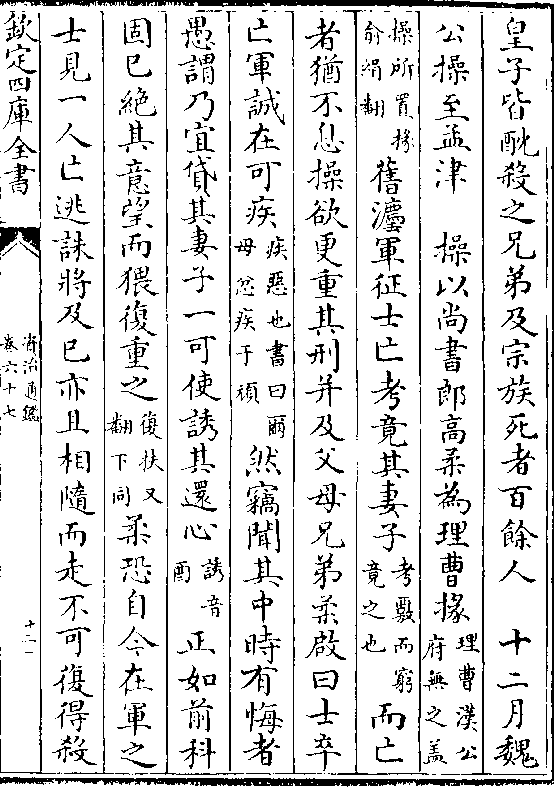 皇子皆酖殺之兄弟及宗族死者百餘人　十二月魏
公操至孟津　操以尚書郎高柔為理曹掾理曹漢公府無之蓋
操所置掾俞絹翻舊灋軍征士亡考竟其妻子考覈而窮竟之也而亡
者猶不息操欲更重其刑并及父母兄弟柔啟曰士卒
亡軍誠在可疾疾惡也書曰爾毋忿疾于頑然竊聞其中時有悔者
愚謂乃宜貸其妻子一可使誘其還心誘音酉正如前科
固已絶其意望而猥復重之復扶又翻下同柔恐自今在軍之
士見一人亡逃誅將及已亦且相隨而走不可復得殺
欽定四庫全書
資治通鑑
卷六十七
十二